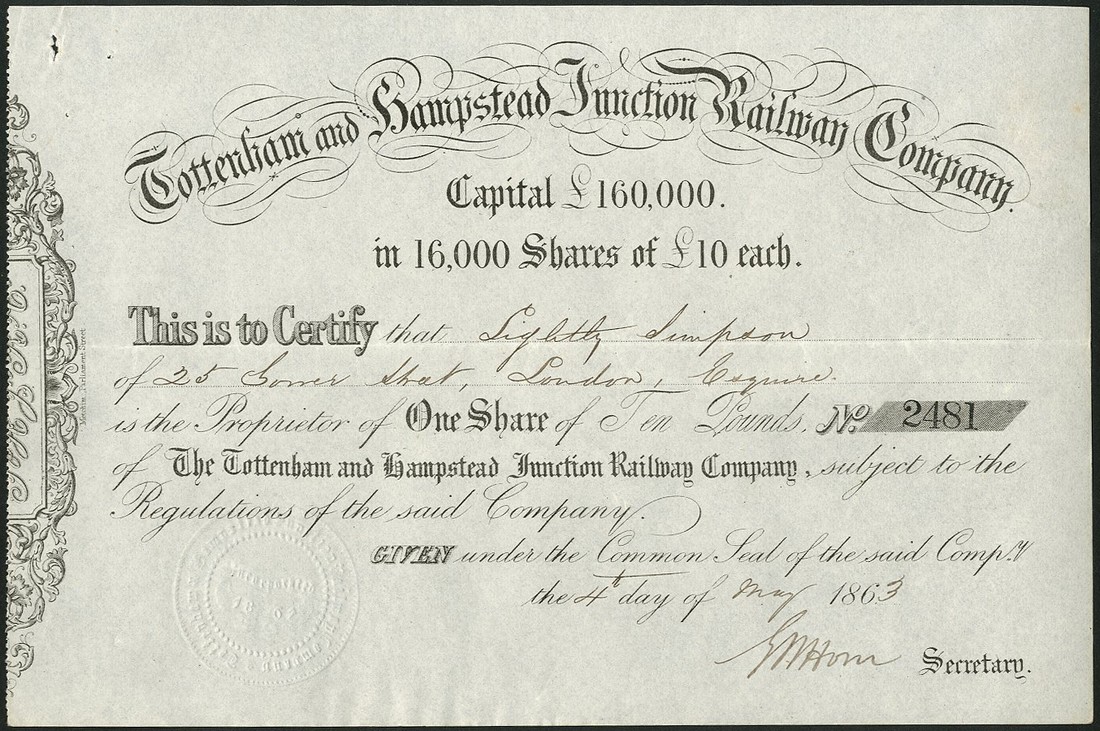 Tottenham and Hampstead Junction Railway Company.
Capital £160,000.
in 16,000 Shares of £10 each.
This is to Certify that Lightly Simpson
of 25 Gower Street, London, Esquire.
is the Proprietor of One Share of Ten Pounds. No. 2481
of The Tottenham and Hampstead Junction Railway Company, subject to the
Regulations of the said Company.
GIVEN under the Common Seal of the said Compy
the 4th day of May 1863
Secretary.
Parliament Street
1862